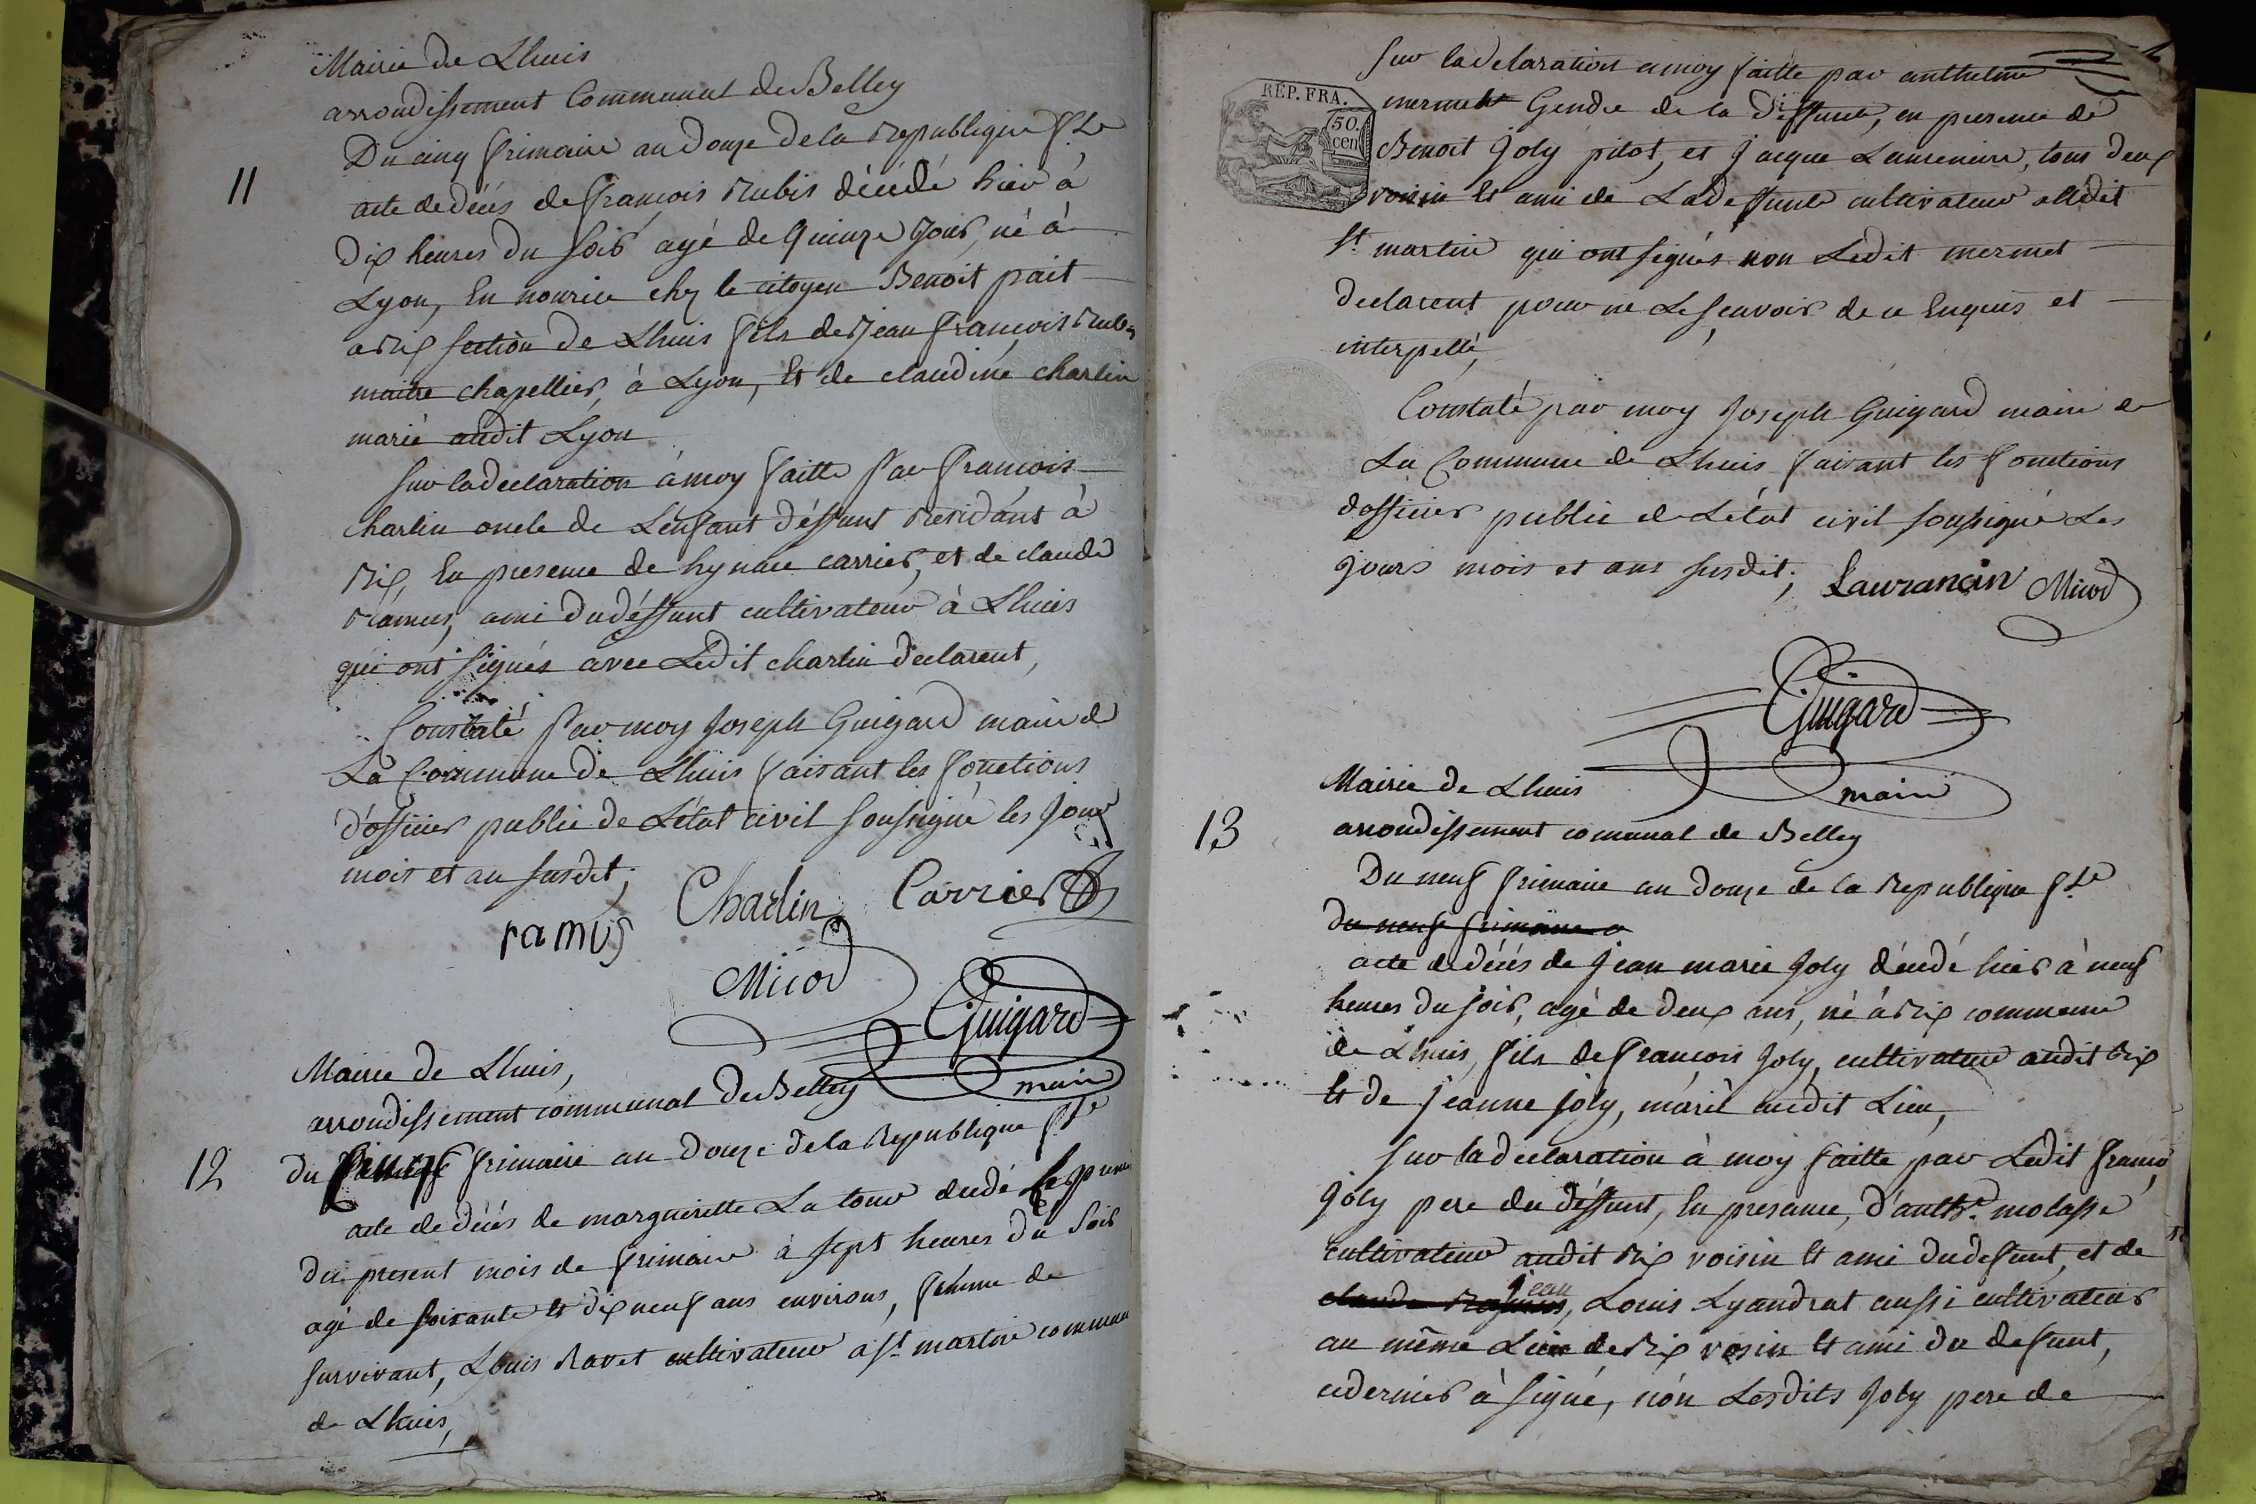 Mairie de Lhuis
arrondissement Communal de Belley
11
Du cinq frimaire an Douze de la republique f.se
acte de décés de françois Rubis décédé hier à
Dix heures du soir agé de Quinze jours, né à
Lyon, En nourice chez le citoyen Benoit pait
a Rix section de Lhuis fils de Jean françois Rubis
maitre chapellier, à Lyon, Et de claudine charlin
marié audit Lyon
Sur la declaration à moy faitte Par françois
charlin oncle de L'enfant déffunt Residant à
Rix, En presence de hynace carrier, et de claude
Ramus, ami du déffunt cultivateur à Lhuis
qui ont signés avec Ledit charlin declarent,
Constaté Par moy Joseph Guigard maire de
La Commune de Lhuis faisant les fonctions
d'officier public de L'état civil soussigné les jour
mois et an susdit;
Charlin Carrier
ramus
Micod
Guigard
maire
Mairie de Lhuis,
arrondissement communal de Belley
12
du frimaire an Douze de la Republique f.se
acte de décés de marguerette La tour decedé le
du present mois de frimaire à sept heures du soir
agé de soixante Et dix neuf ans environs, femme de
survivant, Louis Ravet cultivateur a St martin commune
de Lhuis,
RÉP. FRA.
50.
cen
Sur la declaration a moy faitte par anthelme
mermet Gendre de la Deffunte, en presence de
Benoit Joly pitot, et Jacque Laurencin, tous deux
voisin Et ami de La deffunte cultivateur audit
St martin qui ont signés non Ledit mermet
declarent pour ne Le sçavoir de ce Enquis et
interpellé,
Constaté par moy Joseph Guigard maire de
La Commune de Lhuis faisant les fonctions
d'officier public de L'état civil soussigné Les
jours mois et ans susdit;
Laurancin Micod
Guigard
maire
Mairie de Lhuis
13
arrondissement comunal de Belley
Du neuf frimaire an Douze de la Republique f.se
Du neuf frimaire a
acte de décés de jean marie Joly décédé hier à neuf
heures du soir, agé de Deux ans, né à Rix commune
de Lhuis, fils de francois Joly, cultivateur audit Rix
Et de jeanne joly, marié audit Lieu,
Sur la declaration à moy faitte par Ledit francois
Joly pere du Déffunt, En presence, D'anth.e molasse
cultivateur audit Rix voisin Et ami du defunt, et de
jean
claude Ramus, Louis Lyandrat aussi cultivateur
au même Lieu de Rix vosin Et ami du defunt,
ce dernier à signé, nón Lesdits Joly pere de